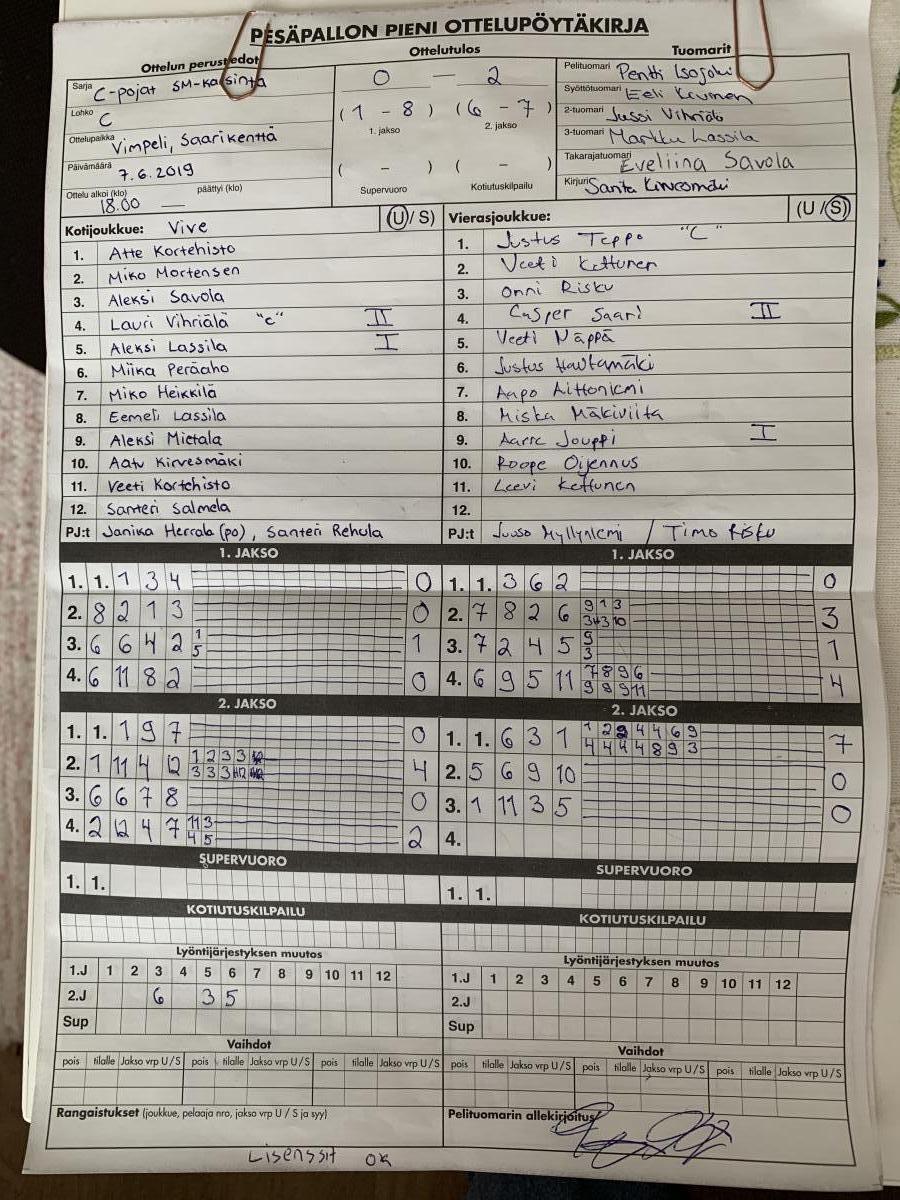 PESÄPALLON PIENI OTTELUPÖYTÄKIRJA
Ottelun perustiedot
Sarja C-pojat SM-karsinta
Lohko C
Ottelupaikka Vimpeli, Saarikenttä
Päivämäärä 7.6.2019
Ottelu alkoi (klo) päättyi (klo)
18.00 —
Ottelutulos
0 — 2
(1 - 8) (6 - 7)
1. jakso 2. jakso
( - ) ( - )
Supervuoro Kotiutuskilpailu
Tuomarit
Pelituomari Pentti Isojoki
Syöttötuomari Eeli
2-tuomari Jussi Vihriälä
3-tuomari Markku Lassila
Takarajatuomari Eveliina Savola
Kirjuri Santa Kirvesmäki
Kotijoukkue: Vive (U/S)
1. Atte Kortehisto
2. Miko Mortensen
3. Aleksi Savola
4. Lauri Vihriälä "c" II
5. Aleksi Lassila I
6. Miika Peräaho
7. Miko Heikkilä
8. Eemeli Lassila
9. Aleksi Mietala
10. Aatu Kirvesmäki
11. Veeti Kortehisto
12. Santeri Salmela
PJ:t Janika Herrala (po), Santeri Rehula
Vierasjoukkue: (U/S)
1. Justus Teppo "C"
2. Veeti Kettunen
3. Onni Risku
4. Casper Saari II
5. Veeti Näppä
6. Justus Hautamäki
7. Aapo Aittoniemi
8. Miska Mäkiviita
9. Aarre Jouppi I
10. Roope Oijennus
11. Leevi Kettunen
12.
PJ:t Juuso Myllyniemi / Timo Risku
1. JAKSO
1. 1. 1 3 4 0
2. 8 2 1 3 0
3. 6 6 4 2 1 1
5
4. 6 11 8 2 0
2. JAKSO
1. 1. 1 9 7 0
2. 1 11 4 12 1 2 3 3 4
3 3 3
3. 6 6 7 8 0
4. 2 12 4 7 11 3 2
4 5
SUPERVUORO
1. 1.
KOTIUTUSKILPAILU
Lyöntijärjestyksen muutos
1.J 1 2 3 4 5 6 7 8 9 10 11 12
2.J 6 3 5
Sup
Vaihdot
pois tilalle Jakso vrp U/S pois tilalle Jakso vrp U/S pois tilalle Jakso vrp U/S
Rangaistukset (joukkue, pelaaja nro, jakso vrp U / S ja syy)
1. JAKSO
1. 1. 3 6 2 0
2. 7 8 2 6 9 1 3 3
3 4 3 10
3. 7 2 4 5 9 1
3
4. 6 9 5 11 7 8 9 6 4
9 8 9 11
2. JAKSO
1. 1. 6 3 1 1 2 2 4 4 6 9 7
4 4 4 4 8 9 3
2. 5 6 9 10 0
3. 1 11 3 5 0
4.
SUPERVUORO
1. 1.
KOTIUTUSKILPAILU
Lyöntijärjestyksen muutos
1.J 1 2 3 4 5 6 7 8 9 10 11 12
2.J
Sup
Vaihdot
pois tilalle Jakso vrp U/S pois tilalle Jakso vrp U/S pois tilalle Jakso vrp U/S
Pelituomarin allekirjoitus
Lisenssit OK